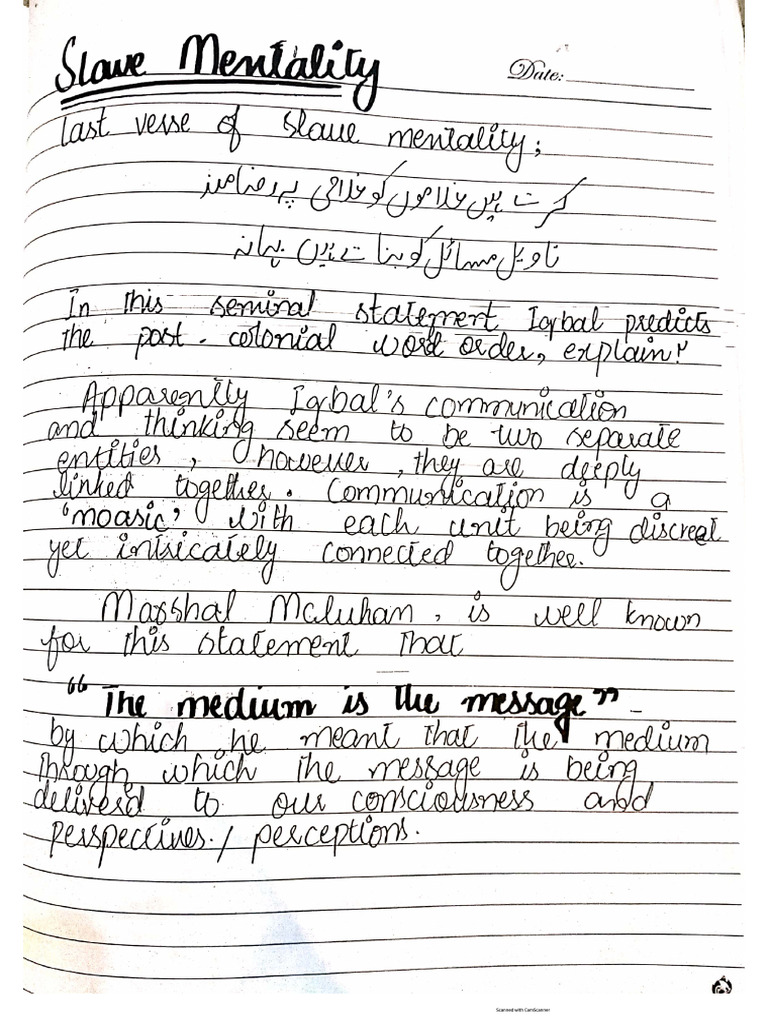 Slave Mentality
Date:
last verse of slave mentality;
کرتے ہیں غلاموں کو غلامی پہ رضامند
تاویل مسائل کو بناتے ہیں بہانہ
In this seminal statement Iqbal predicts
the post-colonial word order, explain?
Apparently Iqbal's communication
and thinking seem to be two separate
entities, however, they are deeply
linked together. Communication is a
'moasic' with each unit being discreet
yet intricately connected together.
Marshal Mcluhan, is well known
for this statement that
"The medium is the message"
by which he meant that the medium
through which the message is being
deliverd to our consciousness and
perspectives./perceptions.
Scanned with CamScanner